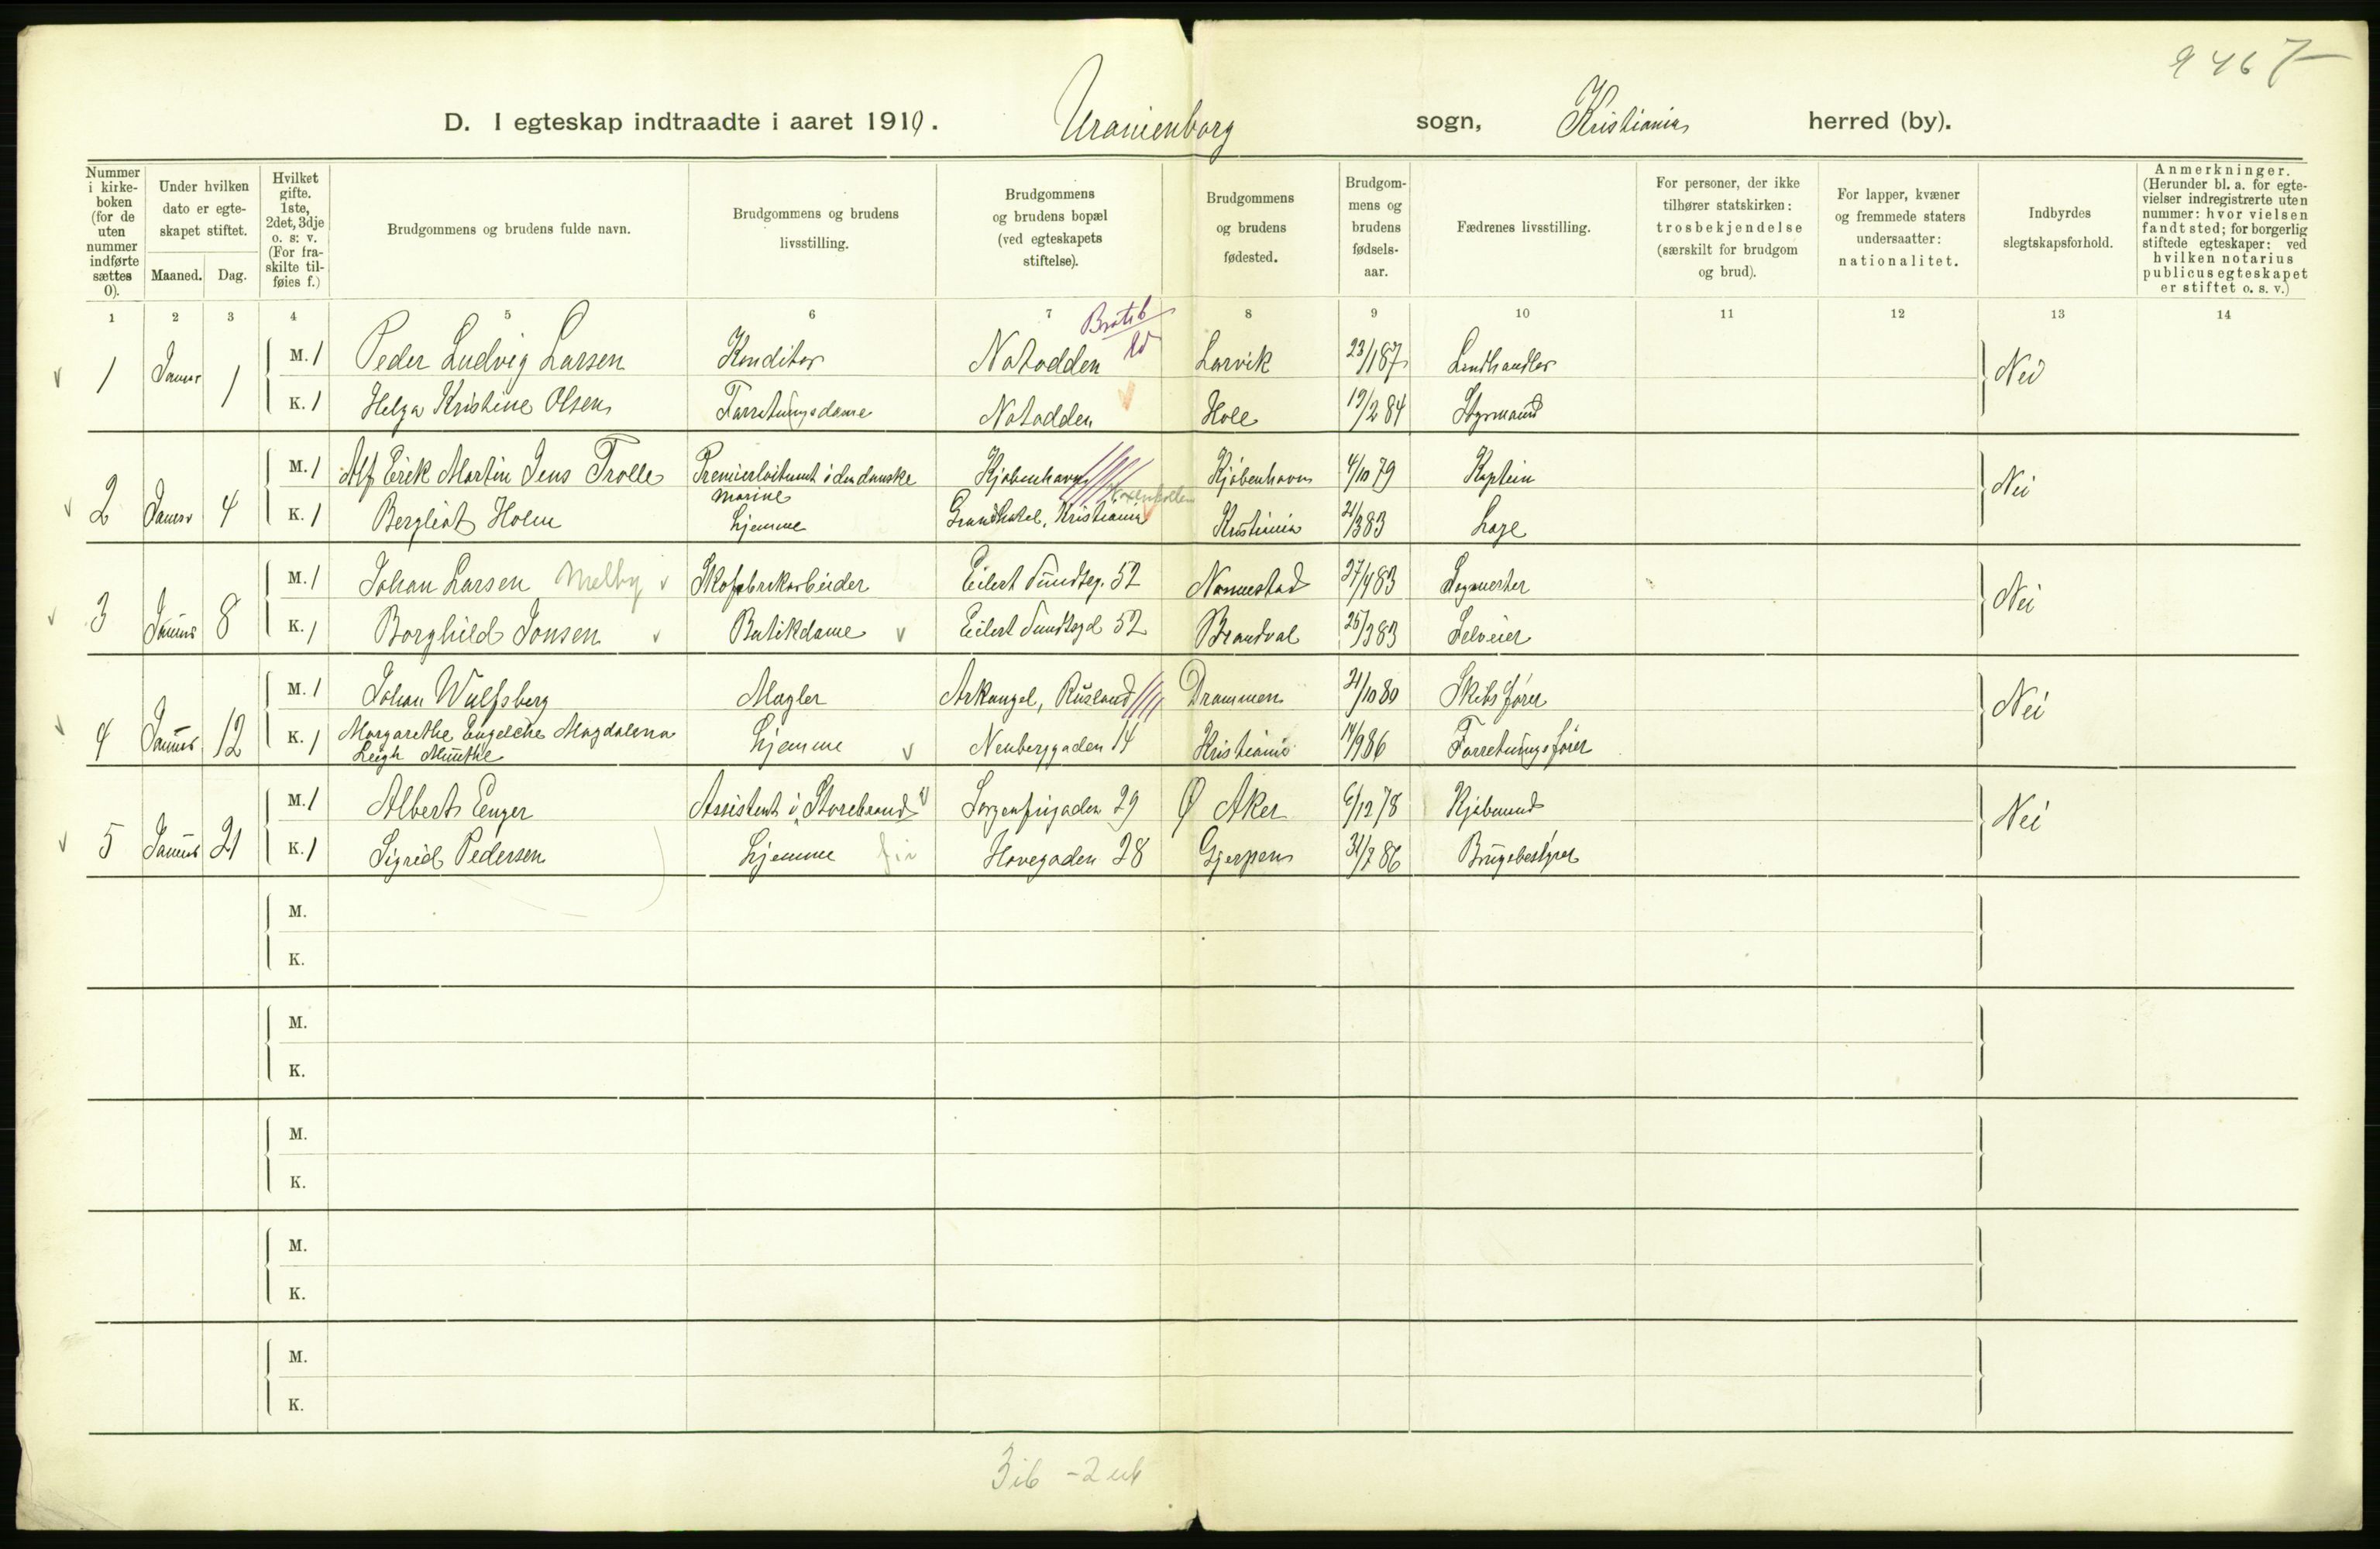 9467
D. I egteskap indtraadte i aaret 1910. Uranienborg sogn, Kristiania herred (by).
Nummer i kirke- boken (for de uten nummer indførte sættes 0).
Under hvilken dato er egte- skapet stiftet.
Maaned. Dag.
Hvilket gifte. 1ste, 2det, 3dje o. s. v. (For fra- skilte til- føies f.)
Brudgommens og brudens fulde navn.
Brudgommens og brudens livsstilling.
Brudgommens og brudens bopæl (ved egteskapets stiftelse).
Brudgommens og brudens fødested.
Brudgom- mens og brudens fødsels- aar.
Fædrenes livsstilling.
For personer, der ikke tilhører statskirken: trosbekjendelse (særskilt for brudgom og brud).
For lapper, kvæner og fremmede staters undersaatter: nationalitet.
Indbyrdes slegtskapsforhold.
Anmerkninger. (Herunder bl. a. for egte- vielser indregistrerte uten nummer: hvor vielsen fandt sted; for borgerlig stiftede egteskaper: ved hvilken notarius publicus egteskapet er stiftet o. s. v.)
1 2 3 4 5 6 7 8 9 10 11 12 13 14
1 Januar 1 M. 1 Peder Ludvig Larsen Konditor Notodden Larvik 23/1 87 Landhandler Nei
K. 1 Helga Kristine Olsen Forretningsdame Notodden Hole 19/2 84 Styrmand
2 Januar 4 M. 1 Alf Erik Martin Jens Trolle Premierløitnant i den danske marine Kjøbenhavn Kjøbenhavn 4/10 79 Kaptein Nei
K. 1 Bergliot Holm Hjemme Grand Hotel, Kristiania Kristiania 21/3 83 Læge
3 Januar 8 M. 1 Johan Larsen Melby Skofabrikarbeider Eilert Sundtsg. 52 Nannestad 27/4 83 Lægmester Nei
K. 1 Borghild Jonsen Butikdame Eilert Sundtsgd 52 Brandval 25/3 83 Selveier
4 Januar 12 M. 1 Johan Wulfsberg Mægler Arkangel, Rusland Drammen 21/10 80 Skibsfører Nei
K. 1 Margarethe Engelche Magdalena Leigh Munthe Hjemme Neuberggaden 14 Kristiania 14/9 86 Forretningsfører
5 Januar 21 M. 1 Albert Enger Assistent i "Storebrand" Sorgenfrigaden 29 Ø Aker 6/12 78 Kjøbmand Nei
K. 1 Sigrid Pedersen Hjemme Hovegaden 28 Gjerpen 31/7 86 Brugsbestyrer
M.
K.
M.
K.
M.
K.
M.
K.
M.
K.
3ib - 2ub